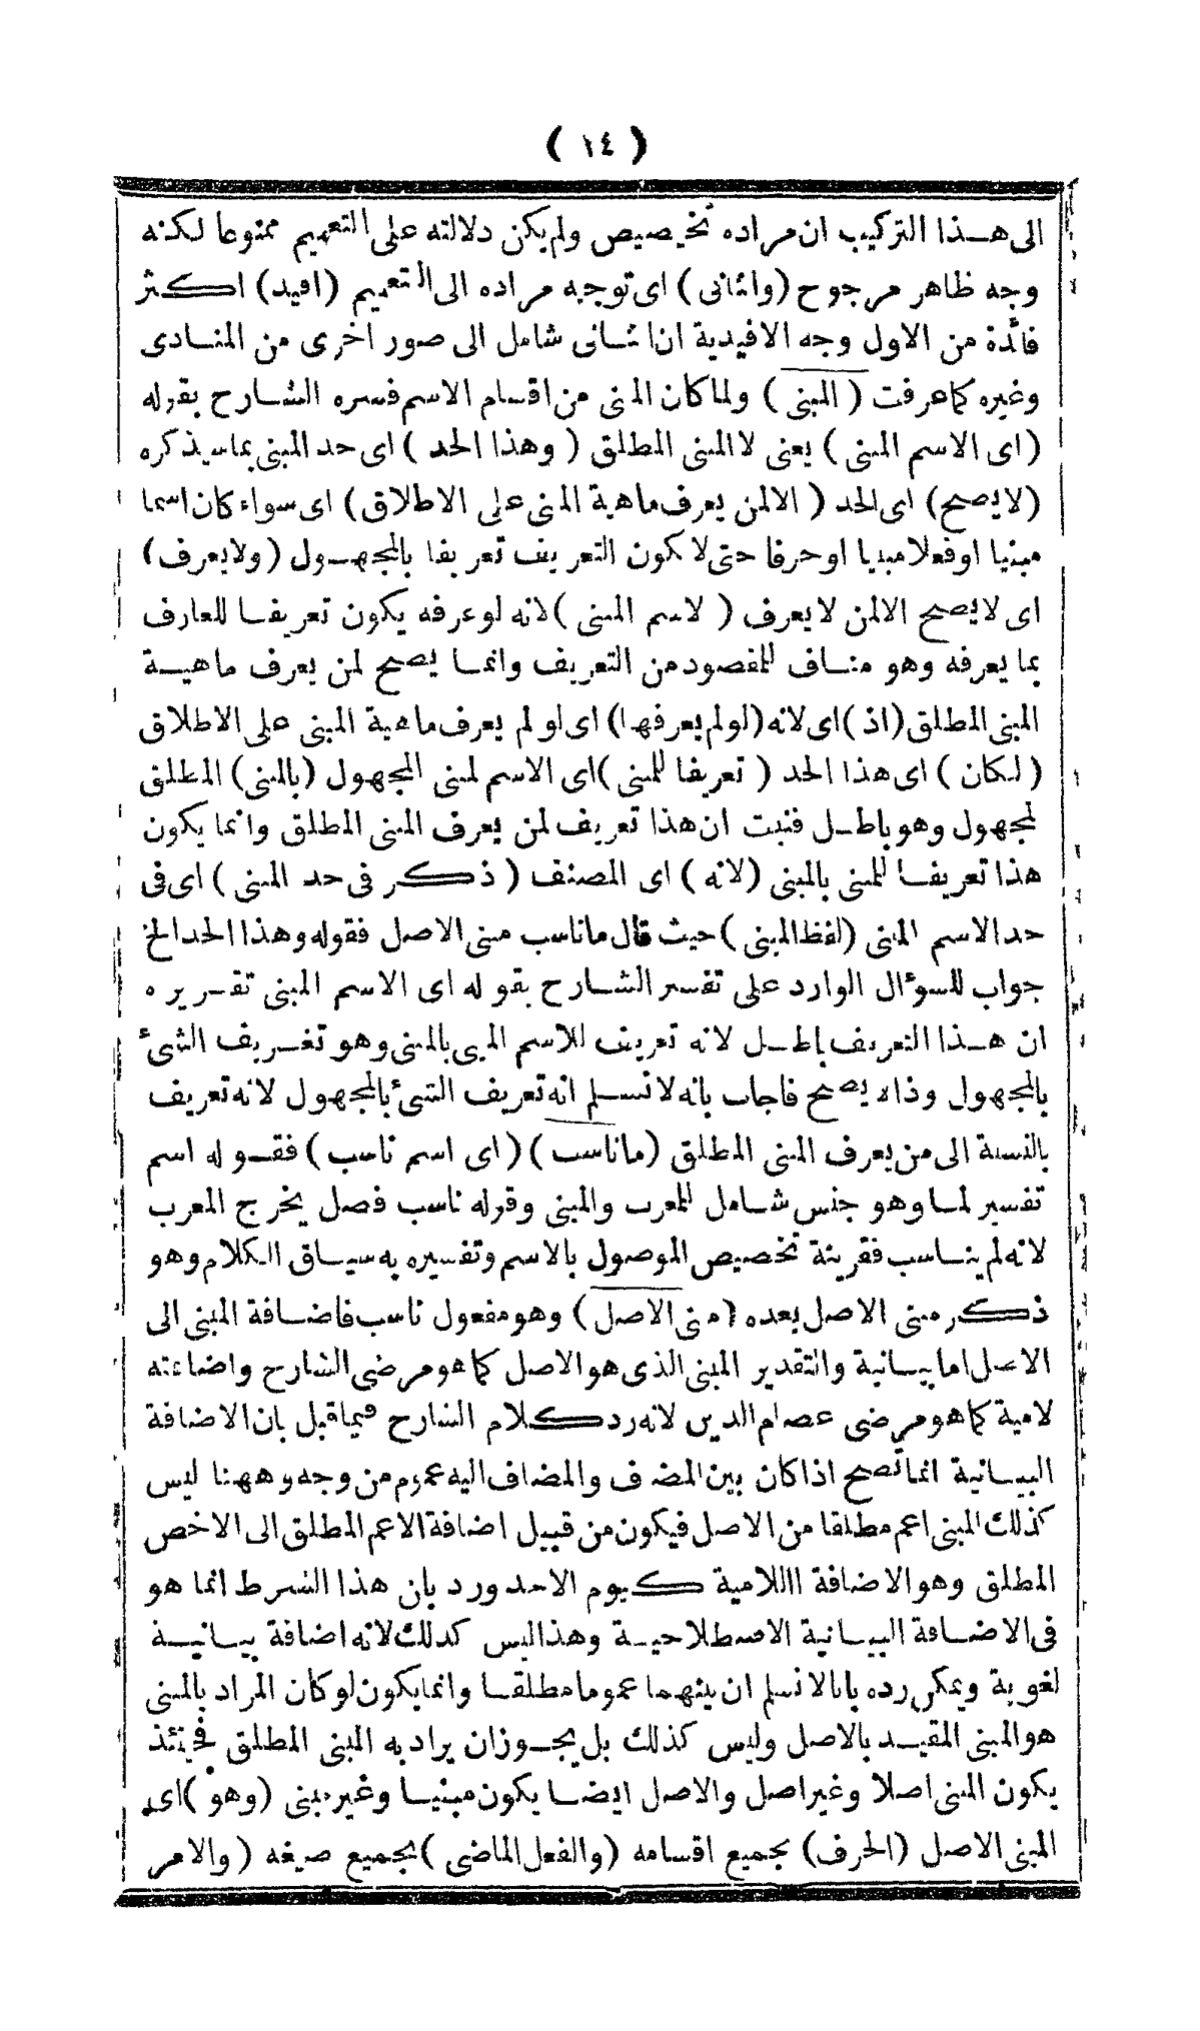 ( ١٤ )
الى هذا التركيب ان مراده تخصيص ولم يكن دلالته على التعميم ممنوعا لكنه
وجه ظاهر مرجوح (والثانى) اى توجيه مراده الى التعميم (افيد) اكثر
فائدة من الاول وجه الافيدية ان الثانى شامل الى صور اخرى من المنادى
وغيره كما عرفت (المبنى) ولما كان المبنى من اقسام الاسم فسره الشارح بقوله
(اى الاسم المبنى) يعنى لا المبنى المطلق (وهذا الحد) اى حد المبنى بما سيذكره
(لا يصح) اى الحد (الا لمن يعرف ماهية المبنى على الاطلاق) اى سواء كان اسما
مبنيا او فعلا مبنيا او حرفا حتى لا يكون التعريف تعريفا بالمجهول (ولا يعرف)
اى لا يصح الا لمن لا يعرف (الاسم المبنى) لانه لو عرفه يكون تعريفا للعارف
بما يعرفه وهو مناف للمقصود من التعريف وانما يصح لمن يعرف ماهية
المبنى المطلق (اذ) اى لانه (لو لم يعرفها) اى لو لم يعرف ماهية المبنى على الاطلاق
(لكان) اى هذا الحد (تعريفا للمبنى) اى الاسم المبنى المجهول (بالمبنى) المطلق
المجهول وهو باطل فثبت ان هذا تعريف لمن يعرف المبنى المطلق وانما يكون
هذا تعريفا للمبنى بالمبنى (لانه) اى المصنف (ذكر فى حد المبنى) اى فى
حد الاسم المبنى (لفظ المبنى) حيث قال ما ناسب مبنى الاصل فقوله وهذا الحد الخ
جواب للسؤال الوارد على تفسير الشارح بقوله اى الاسم المبنى تقريره
ان هذا التعريف باطل لانه تعريف للاسم المبنى بالمبنى وهو تعريف الشئ
بالمجهول وذا لا يصح فاجاب بانه لا نسلم انه تعريف الشئ بالمجهول لانه تعريف
بالنسبة الى من يعرف المبنى المطلق (ما ناسب) (اى اسم ناسب) فقوله اسم
تفسير لما وهو جنس شامل للمعرب والمبنى وقوله ناسب فصل يخرج المعرب
لانه لم يناسب فقرينة تخصيص الموصول بالاسم وتفسيره به سياق الكلام وهو
ذكر مبنى الاصل بعده (مبنى الاصل) وهو مفعول ناسب فاضافة المبنى الى
الاصل اما بيانية والتقدير المبنى الذى هو الاصل كما هو مرضى الشارح واضافته
لامية كما هو مرضى عصام الدين لانه رد كلام الشارح فيما قبل بان الاضافة
البيانية انما تصح اذا كان بين المضاف والمضاف اليه عموم من وجه وههنا ليس
كذلك المبنى اعم مطلقا من الاصل فيكون من قبيل اضافة الاعم المطلق الى الاخص
المطلق وهو الاضافة االلامية كيوم الاحد ورد بان هذا الشرط انما هو
فى الاضافة البيانية الاصطلاحية وهذا ليس كذلك لانه اضافة بيانية
لغوية ويمكن رده بانا لا نسلم ان بينهما عموما مطلقا وانما يكون لو كان المراد بالمبنى
هو المبنى المقيد بالاصل وليس كذلك بل يجوز ان يراد به المبنى المطلق فحينئذ
يكون المبنى اصلا وغير اصل والاصل ايضا يكون مبنيا وغير مبنى (وهو) اى
المبنى الاصل (الحرف) بجميع اقسامه (والفعل الماضى) بجميع صيغه (والامر